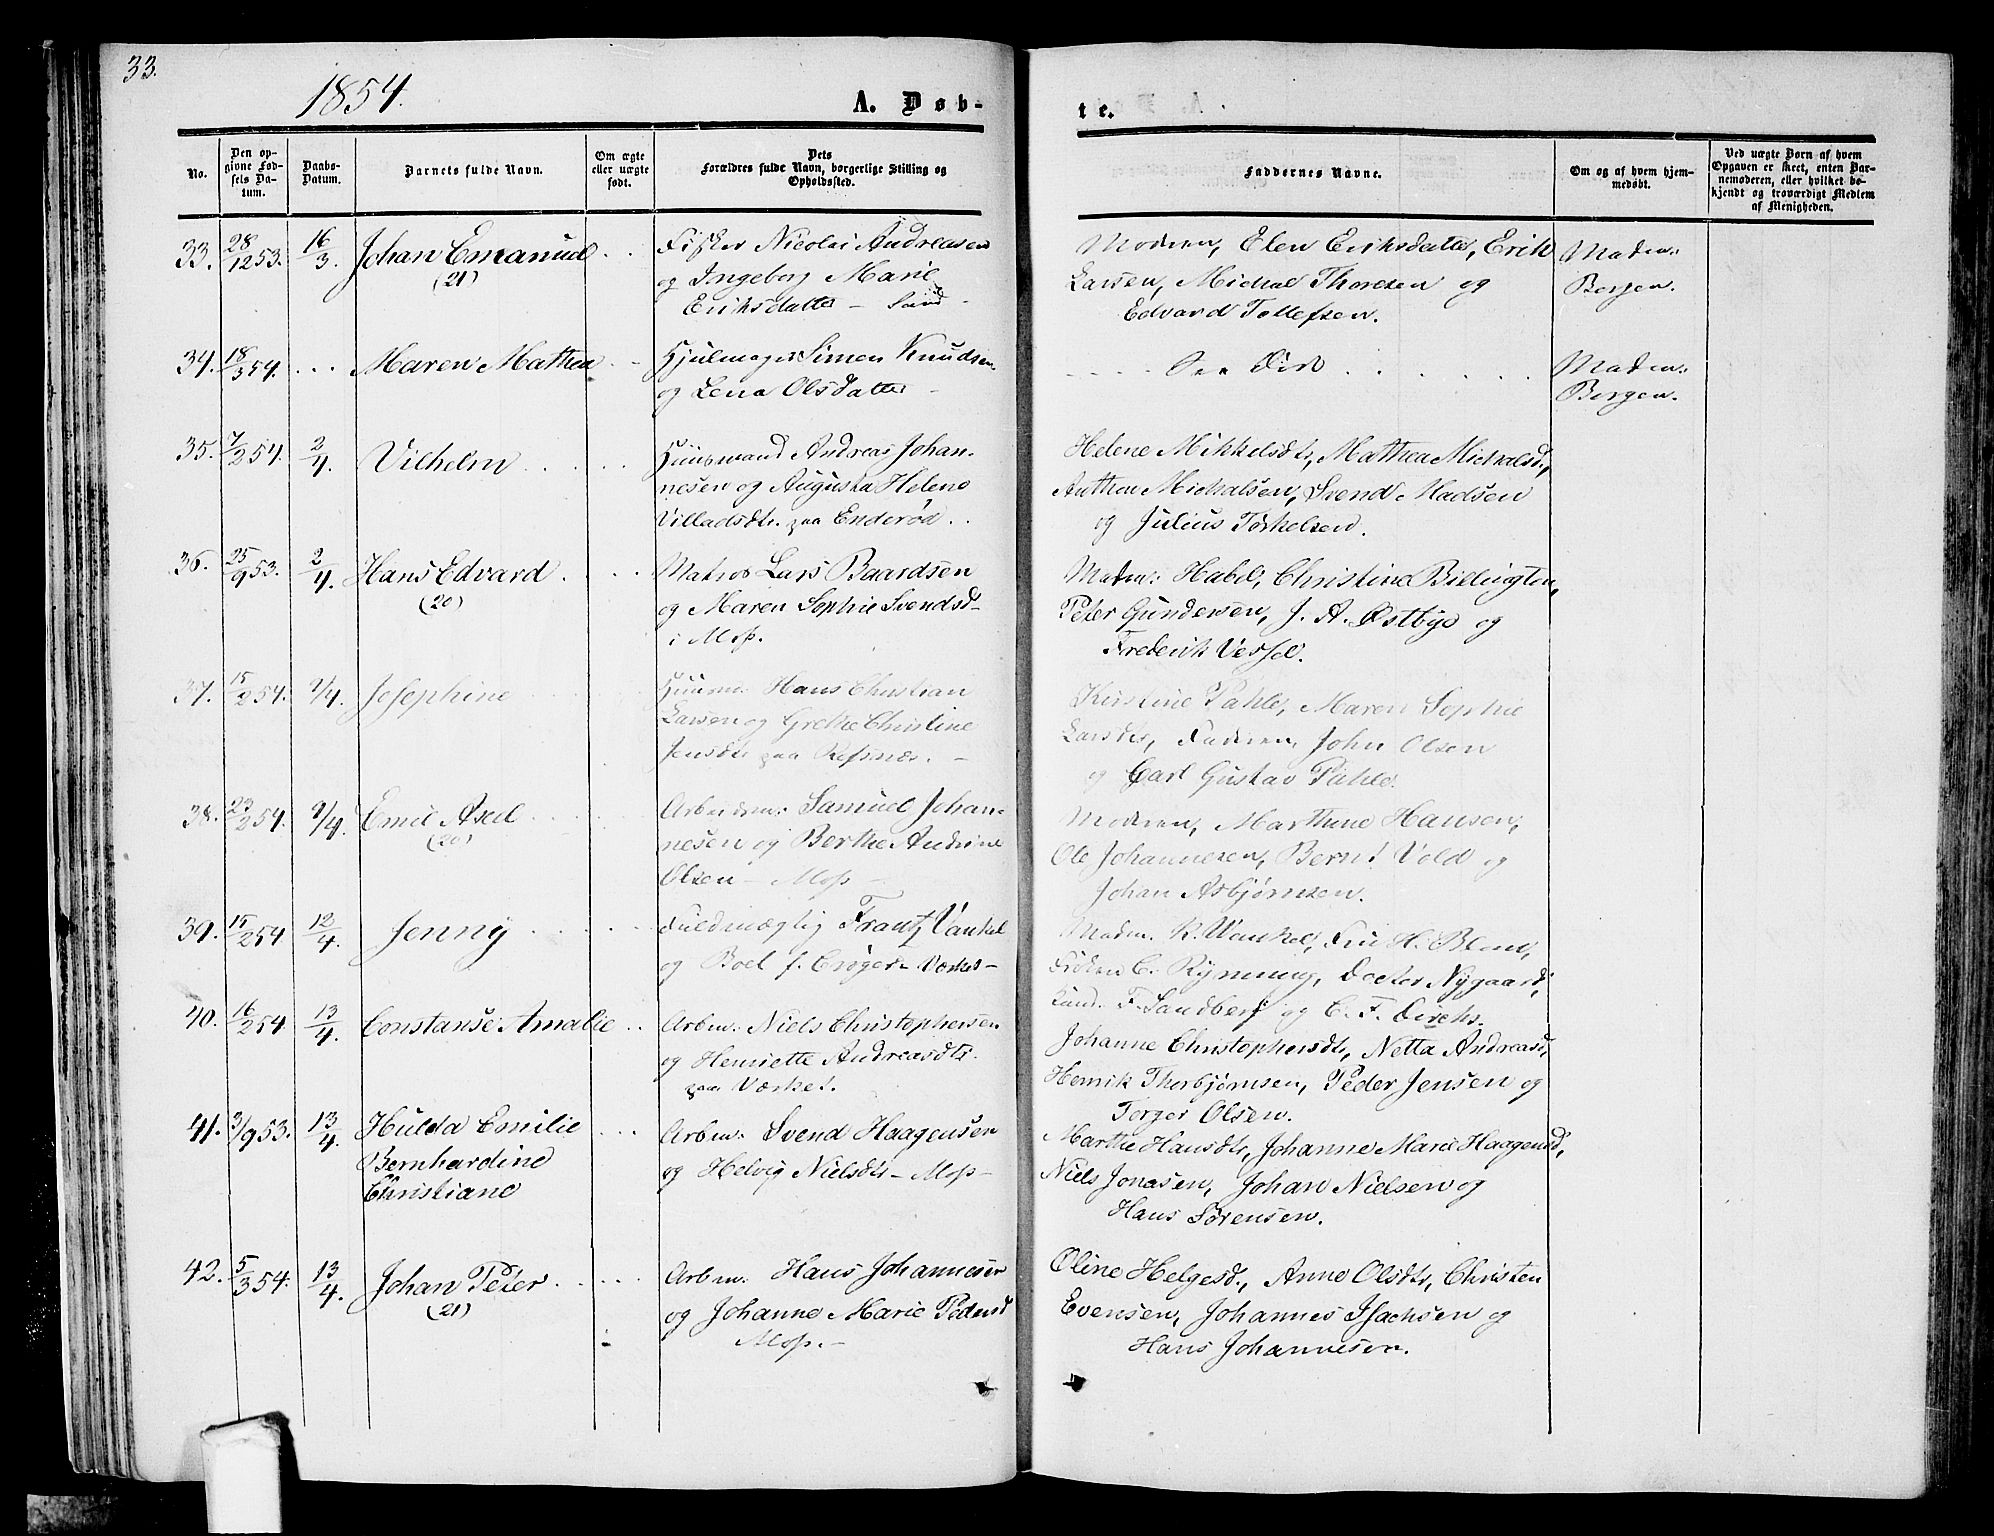 33.
1854.
A. Døb-
te.
No.
Den op-
givne Fød-
sels Da-
tum.
Daabs-
Datum.
Barnets fulde Navn.
Om ægte
eller uægte
født.
Dets
Forældres fulde Navn, borgerlige Stilling og
Opholdssted.
Faddernes Navne.
Om og af hvem hjem-
medøbt.
Ved uægte Børn af hvem
Opgaven er skeet, enten Bar-
nemoderen, eller hvilket be-
kjendt og troværdigt Medlem
af Menigheden.
33. 28/12 53. 16/3. Johan Emanuel
(21)
Fisker Nicolai Andreasen
og Ingeborg Marie
Eriksdatter - Sand -
Modren, Elen Eriksdatter, Erik
Larsen, Michal Thoresen og
Edvard Tollefsen.
Madm:
Bergen.
34. 18/3 54. ... Maren Mathea
Hjulmager Simen Knudsen
og Lena Olsdatter -
Død
Madm:
Bergen.
35. 7/2 54. 2/4. Vilhelm
Huusmand Andreas Johan-
nesen og Augusta Helene
Villadsdtr. paa Enderød
Helene Mikkelsdtr, Mathea Michalsd.,
Anthon Michalsen, Svend Madsen
og Julius Torkelsen.
36. 25/9 53. 2/4. Hans Edvard
(20)
Matros Lars Baardsen
og Maren Sophie Svendsd-
i Moss.
Madm: Habel, Christine Billington,
Peter Gundersen, J. A. Østbye og
Frederik Vessel.
37. 15/2 54. 9/4. Josephine
Huusm. Hans Christian
Larsen og Grethe Christine
Jensdtr paa Refsnæs. -
Kristine Pahle, Maren Sophie
Larsdtr, Fadren, John Olsen
og Carl Gustav Pahle.
38. 23/2 54. 9/4. Emil Axel
(20)
Arbeidsm: Samuel Johan-
nesen og Berthe Andrine
Olsen - Moss -
Modren, Marthine Hansen,
Ole Johannesen, Bernt Vold og
Johan Asbjørnsen.
39. 15/2 54 12/4. Jenny
Fuldmægtig Frantz Vankel
og Boel f. Crøger - Værket -
Madm. K. Wankel, Fru H. Blom,
Frøken C. Rynning, Doctor Nygaard,
Kand. F. Sandberg og C. F. Dirchs.
40. 16/2 54 13/4. Constanse Amalie
Arbm: Niels Christophersen
og Henriette Andreasdtr.
paa Værket.
Johanne Christophersdtr, Netta Andreasd,
Henrik Thorbjørnsen, Peder Jensen og
Torger Olsen.
41. 3/9 53. 13/4. Hulda Emilie
Bernhardine
Christiane
Arbm: Svend Haagensen
og Helvig Nielsdtr - Moss -
Marthe Hansdtr, Johanne Marie Haagensd,
Niels Jonasen, Johan Nielsen og
Hans Sørensen.
42. 5/3 54. 13/4. Johan Peter
(21)
Arbm. Hans Johannesen
og Johanne Marie Pedersd
Moss. -
Oline Helgesd., Anne Olsdtr, Christen
Evensen, Johannes Isachsen og
Hans Johannesen.